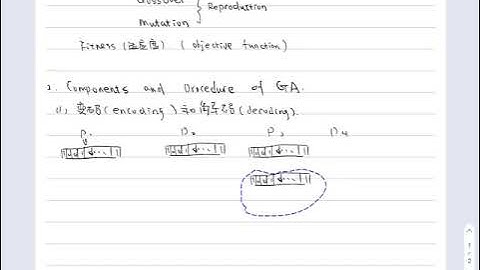 Crossover } Reproduction
Mutation
Fitness (适应度) (objective function)
2. Components and Procedure of GA.
(1) 编码(encoding)和解码(decoding).
P1 P2 P3 P4